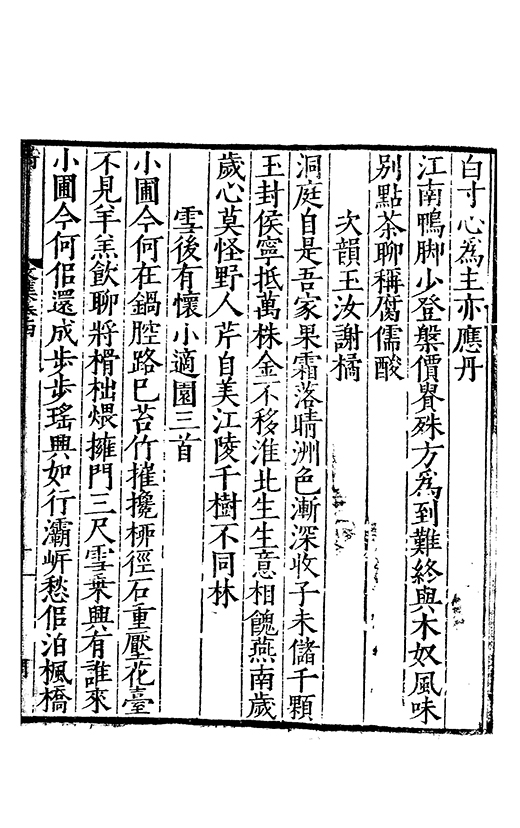 白寸心爲主亦應丹
江南鴨脚少登槃價賤殊方爲到難終與木奴風味
別點茶聊稱腐儒酸
次韻王汝謝橘
洞庭自是吾家果霜落晴洲色漸深收子未儲千顆
玉封侯寧抵萬株金不移淮北生生意相餽燕南歲
歲心莫怪野人芹自美江陵千樹不同林
雪後有懷小適園三首
小圃今何在鍋腔路已苔竹摧攙柳徑石重壓花臺
不見羊羔飲聊將榾柮煨擁門三尺雪乗興有誰來
小圃今何似還成步步瑤興如行灞岍愁似泊楓橋
文集卷